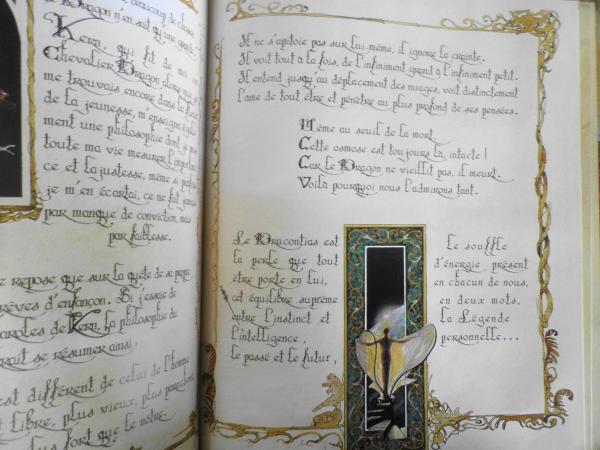 beaucoup de choses,
Dragon n'en sait qu'une grande.
Kern, qui fit de moi un
Chevalier Dragon alors que je
me trouvais encore dans la fleur
de la jeunesse, m'enseigna égale-
ment une philosophie dont je pus
toute ma vie mesurer l'importan-
ce et la justesse, même si parfois
je m'en écartai, ce ne fut jamais
par manque de conviction, mais
par faiblesse.
repose que sur la quête de sa propre
rêves d'enfançon. Si j'essaie de
paroles de Kern, la philosophie du
rait se résumer ainsi,
est différent de celui de l'homme
st libre, plus vieux, plus
plus fort que le nôtre.
Il ne s'apitoie pas sur lui-même, il ignore la crainte.
Il voit tout à la fois, de l'infiniment grand à l'infiniment petit.
Il entend jusqu'au déplacement des nuages, voit distinctement
l'âme de tout être et pénètre au plus profond de ses pensées.
Même au seuil de la mort,
Cette osmose est toujours là, intacte !
Car le Dragon ne vieillit pas, il meurt.
Voilà pourquoi nous l'admirons tant.
Le Dracontias est
la perle que tout
être porte en lui,
cet équilibre suprême
entre l'instinct et
l'intelligence,
le passé et le futur,
Le souffle
d'énergie, présent
en chacun de nous,
en deux mots,
la Légende
personnelle...